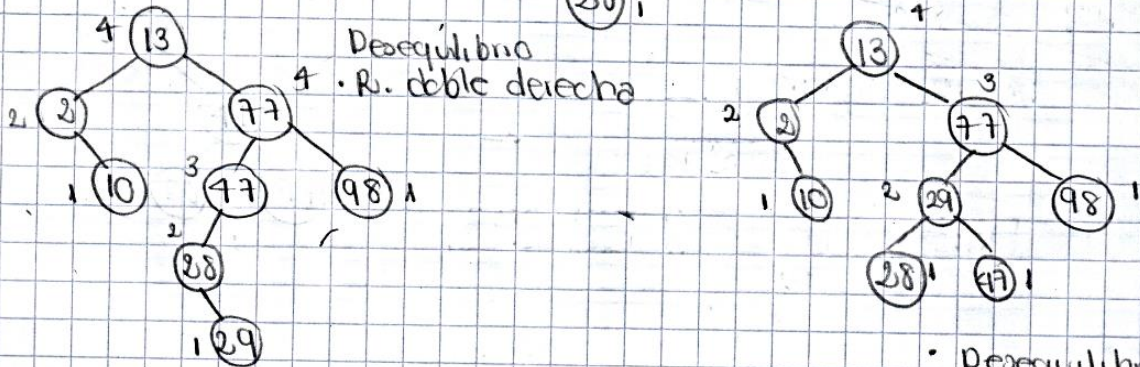 4 13
Desequilibrio
4 · R. doble derecha
2 2
77
1 10
3 47
98 1
2
28
1 29
1
4
13
3
2 2
77
1 10
2 29
98 1
28 1
47 1